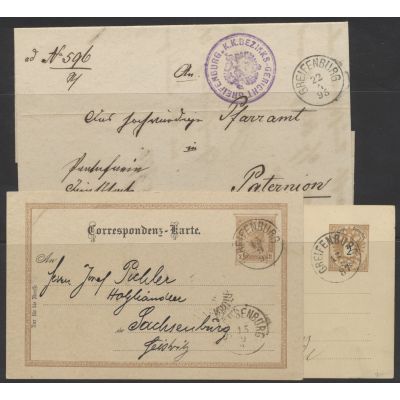 ad Nº 596
K.K. BEZIRKS-GERICHT GREIFENBURG
GREIFENBURG
22
95
An
Das hochwürdige Pfarramt
in
Paternion
Correspondenz-Karte.
An
Herrn Josef Pichler
Holzhändler
in Sachsenburg
GREIFENBURG
SACHSENBURG
15
9
GREIFENBURG
2